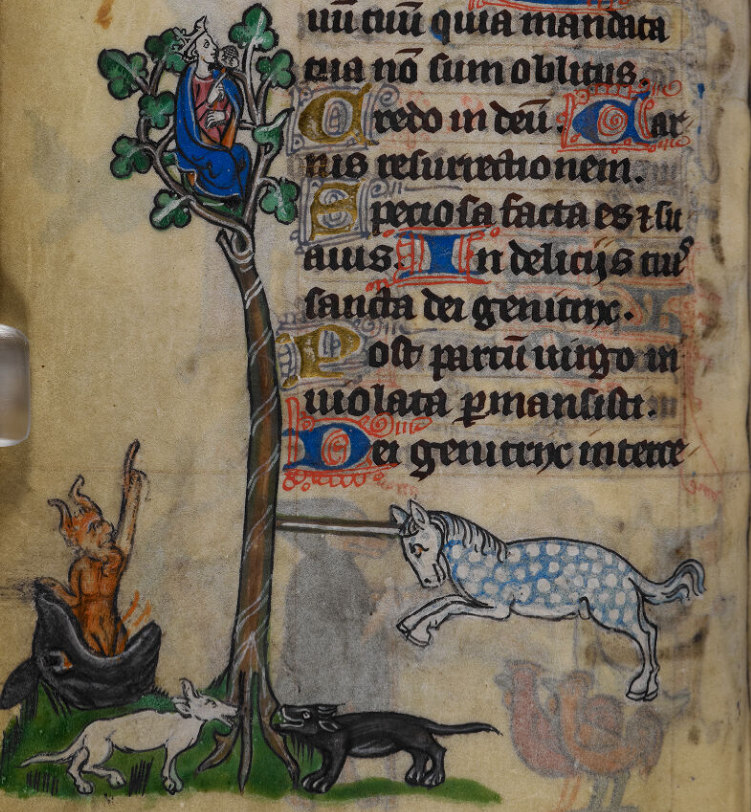 uū tuū quia mandata
tua nō sum oblitus.
Credo in deū. Car
nis resurrectionem.
Speciosa facta es ⁊ su
auis. In delicijs tuis
sancta dei genitrix.
Post partū uirgo in
uiolata ꝑmansisti.
Dei genitrix interce